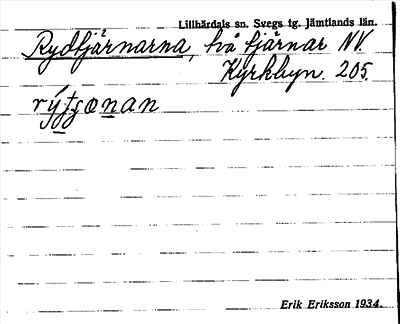 Lillhärdals sn. Svegs tg. Jämtlands län.
Rydtjärnarna, två tjärnar NV.
Kyrkbyn. 205.
Erik Eriksson 1934.